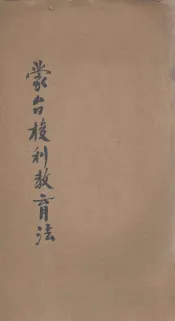 蒙台梭利教育法